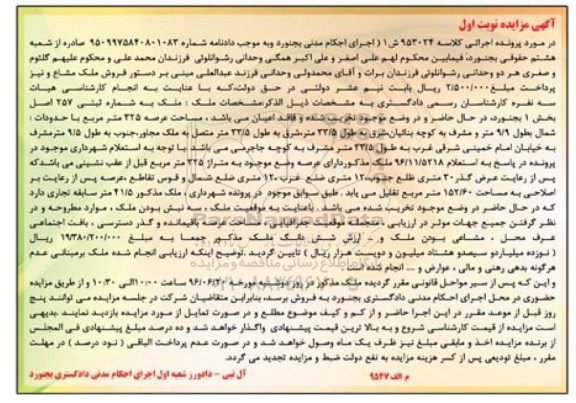 آگهی مزایده نوبت اول
در مورد پرونده اجرائی کلاسه ۹۵۳۰۲۴ ش۱ ( اجرای احکام مدنی بجنورد وبه موجب دادنامه شماره ۹۵۰۹۹۷۵۸۴۰۸۰۱۰۸۳ صادره از شعبه
هشتم حقوقی بجنورد، فیمابین محکوم لهم علی اصغر و علی اکبر همگی وحدانی رشوانلوئی فرزندان محمد علی و محکوم علیهم گلثوم
و صغری هر دو وحدانی رشوانلوئی فرزندان برات و آقای محمدولی وحدانی فرزند عبدالعلی مبنی بر دستور فروش ملک مشاع و نیز
پرداخت مبلغ ۲/۵۰۰/۰۰۰ ریال بابت نیم عشر دولتی در حق دولت،که با عنایت به انجام کارشناسی هیات
سه نفره کارشناسان رسمی دادگستری به مشخصات ذیل الذکر:مشخصات ملک : ملک به شماره ثبتی ۲۵۷ اصل
بخش ۱ بجنورد، در حال حاضر و در وضع موجود تخریب شده و فاقد اعیان می باشد ، مساحت عرصه ۳۲۵ متر مربع با حدودات :
شمال بطول ۹/۱ متر و مشرف به کوچه بنائیان،شرق به طول ۳۳/۵ متر،شرق به طول ۳۳/۵ متر متصل به ملک مجاور،جنوب به طول ۹/۵ مترمشرف
به خیابان امام خمینی شرقی غرب به طول ۳۳/۵ متر مشرف به کوچه جاجرمی می باشد. با توجه به استعلام شهرداری موجود در
پرونده در پاسخ به استعلام ۹۶/۱۱/۵۲۱۸ ملک مذکوردارای عرصه وضع موجود به متراژ ۳۲۵ متر مربع قبل از عقب نشینی می باشدکه
پس از رعایت عرض گذر۳۰ متری ظلع جنوب،۱۲ متری ضلع غرب ،۱۲ متری ضلع شمال و قوس تقاطع ،عرصه پس از رعایت بر
اصلاحی به مساحت ۱۵۲/۶۰ متر مربع تقلیل می یابد . طبق سوابق موجود در پرونده شهرداری ، ملک مذکور ۴۱/۵ متر سابقه تجاری دارد
که در حال حاضر در وضع موجود تخریب شده می باشد . باعنایت به موقعیت ملک ، سه نبش بودن ملک ، موارد مطروحه و در
نظر گرفتن جمیع جهات موثر در ارزیابی ، منجمله موقعیت جغرافیایی ، مساحت عرصه باقیمانده و گذر دسترسی ، بافت اجتماعی
عرف محل ، مشاعی بودن ملک و ... ارزش شش دانگ ملک مذکور جمعا به مبلغ ۱۹۳۸۰/۲۰۰/۰۰۰ ریال
( نوزده میلیاردو سیصدو هشتاد میلیون و دویست هزار ریال ) تایین گردید .توضیح اینکه ارزیابی انجام شده ملک برمبنای عدم
هرگونه بدهی رهنی و مالی ، عوارض و ... انجام شده است .
و این که پس از سیر مواحل قانونی مقرر گردیده ملک مذکور در روز دوشنبه مورخه ۹۶/۰۶/۲۰ ساعت ۱۰:۰۰الی ۱۰:۳۰ و از طریق مزایده
حضوری در محل اجرای احکام مدنی دادگستری بجنورد به فروش برسد، بنابراین متقاضیان شرکت در جلسه مزایده می توانند پنج
روز قبل از موعد مقرر در این اجرا حاضر و از کم و کیف موضوع مطلع و در صورت تمایل از مورد مزایده بازدید نمایند .بدیهی
است مزایده از قیمت کارشناسی شروع و به بالا ترین قیمت پیشنهادی واگذار خواهد شد و ده درصد مبلغ پیشنهادی فی المجلس
از برنده مزایده اخذ و مابقی مبلغ نیز ظرف یک ماه وصول خواهد شد و در صورت عدم پرداخت الباقی ( نود درصد ) در مهلت
مقرر ، مبلغ تودیعی پس از کسر هزینه مزایده به نفع دولت ضبط و مزایده تجدید می گردد.
م الف ۹۵۴۷
آل نبی – دادورز شعبه اول اجرای احکام مدنی دادگستری بجنورد